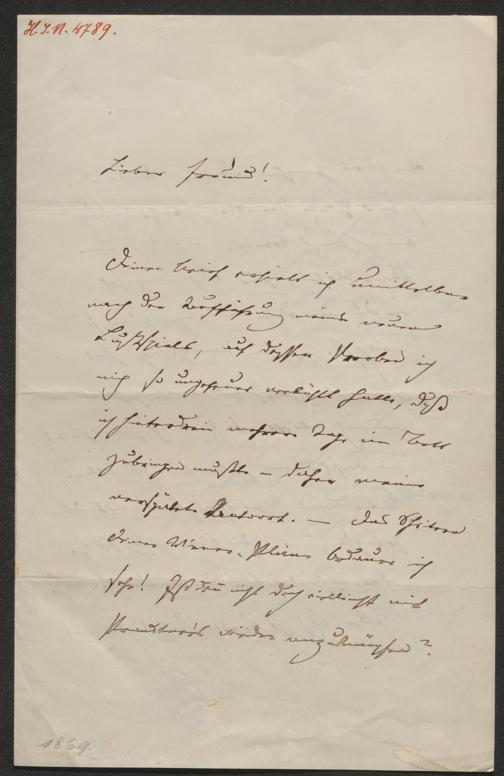 H.I.N. 4789.
Lieber Freund!
Deinen Brief erhielt ich unmittelbar
nach der Aufführung meines neuen
Lustspiels, auf dessen Proben ich
mich so ungeheuer verkühlt hatte, daß
ich hinterdrein mehrere Tage im Bett
zubringen mußte – daher meine
verspätete Antwort. – Das Scheitern
Deiner Wiener-Pläne bedauere ich
sehr! Ist denn nicht doch vielleicht mit
wieder anzuknüpfen?
1869.